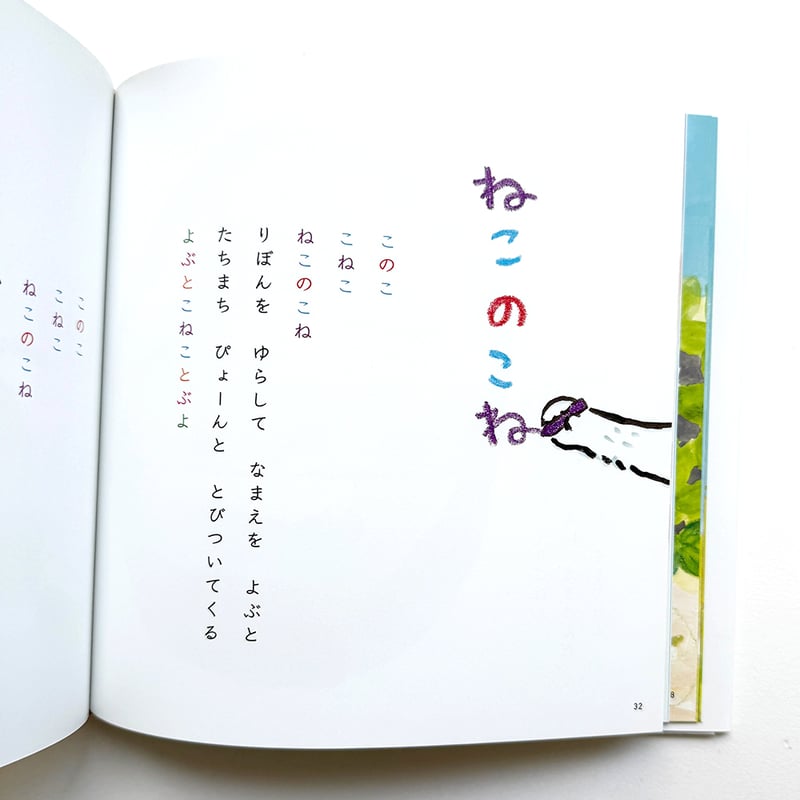 ねこのこね
このこ
こねこ
ねこのこね
りぼんを ゆらして なまえを よぶと
たちまち ぴょーんと とびついてくる
よぶとこねことぶよ
32
8
このこ
こねこ
ねこのこね